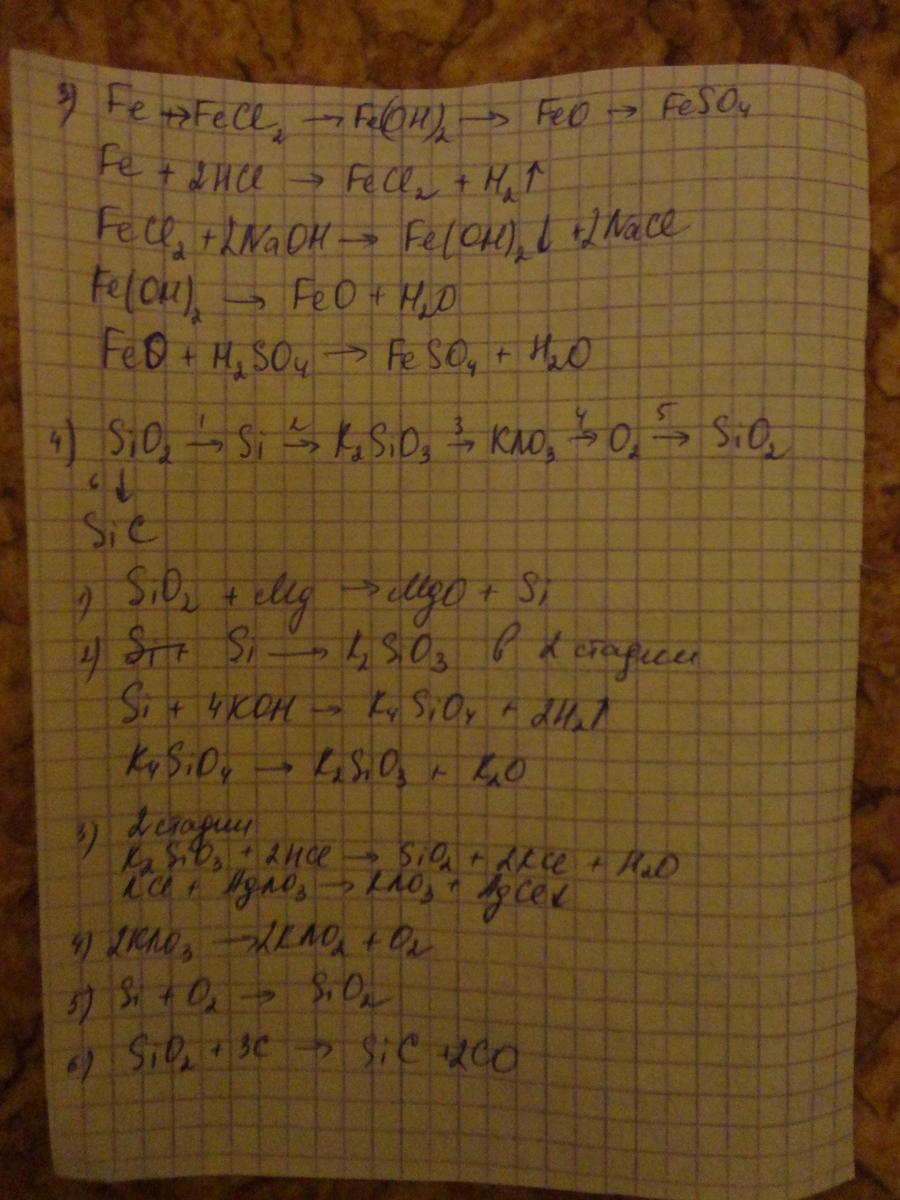 3) Fe → FeCl₂ → Fe(OH)₂ → FeO → FeSO₄
Fe + 2HCl → FeCl₂ + H₂↑
FeCl₂ + 2NaOH → Fe(OH)₂↓ + 2NaCl
Fe(OH)₂ → FeO + H₂O
FeO + H₂SO₄ → FeSO₄ + H₂O
4) SiO₂ →¹ Si →² K₂SiO₃ →³ KNO₃ →⁴ O₂ →⁵ SiO₂
6 ↓
SiC
1) SiO₂ + Mg → MgO + Si
2) Si + Si → K₂SiO₃ в 2 стадии
Si + 4KOH → K₄SiO₄ + 2H₂↑
K₄SiO₄ → K₂SiO₃ + K₂O
3) 2 стадии
K₂SiO₃ + 2HCl → SiO₂ + 2KCl + H₂O
KCl + AgNO₃ → KNO₃ + AgCl↓
4) 2KNO₃ → 2KNO₂ + O₂
5) Si + O₂ → SiO₂
6) SiO₂ + 3C → SiC + 2CO